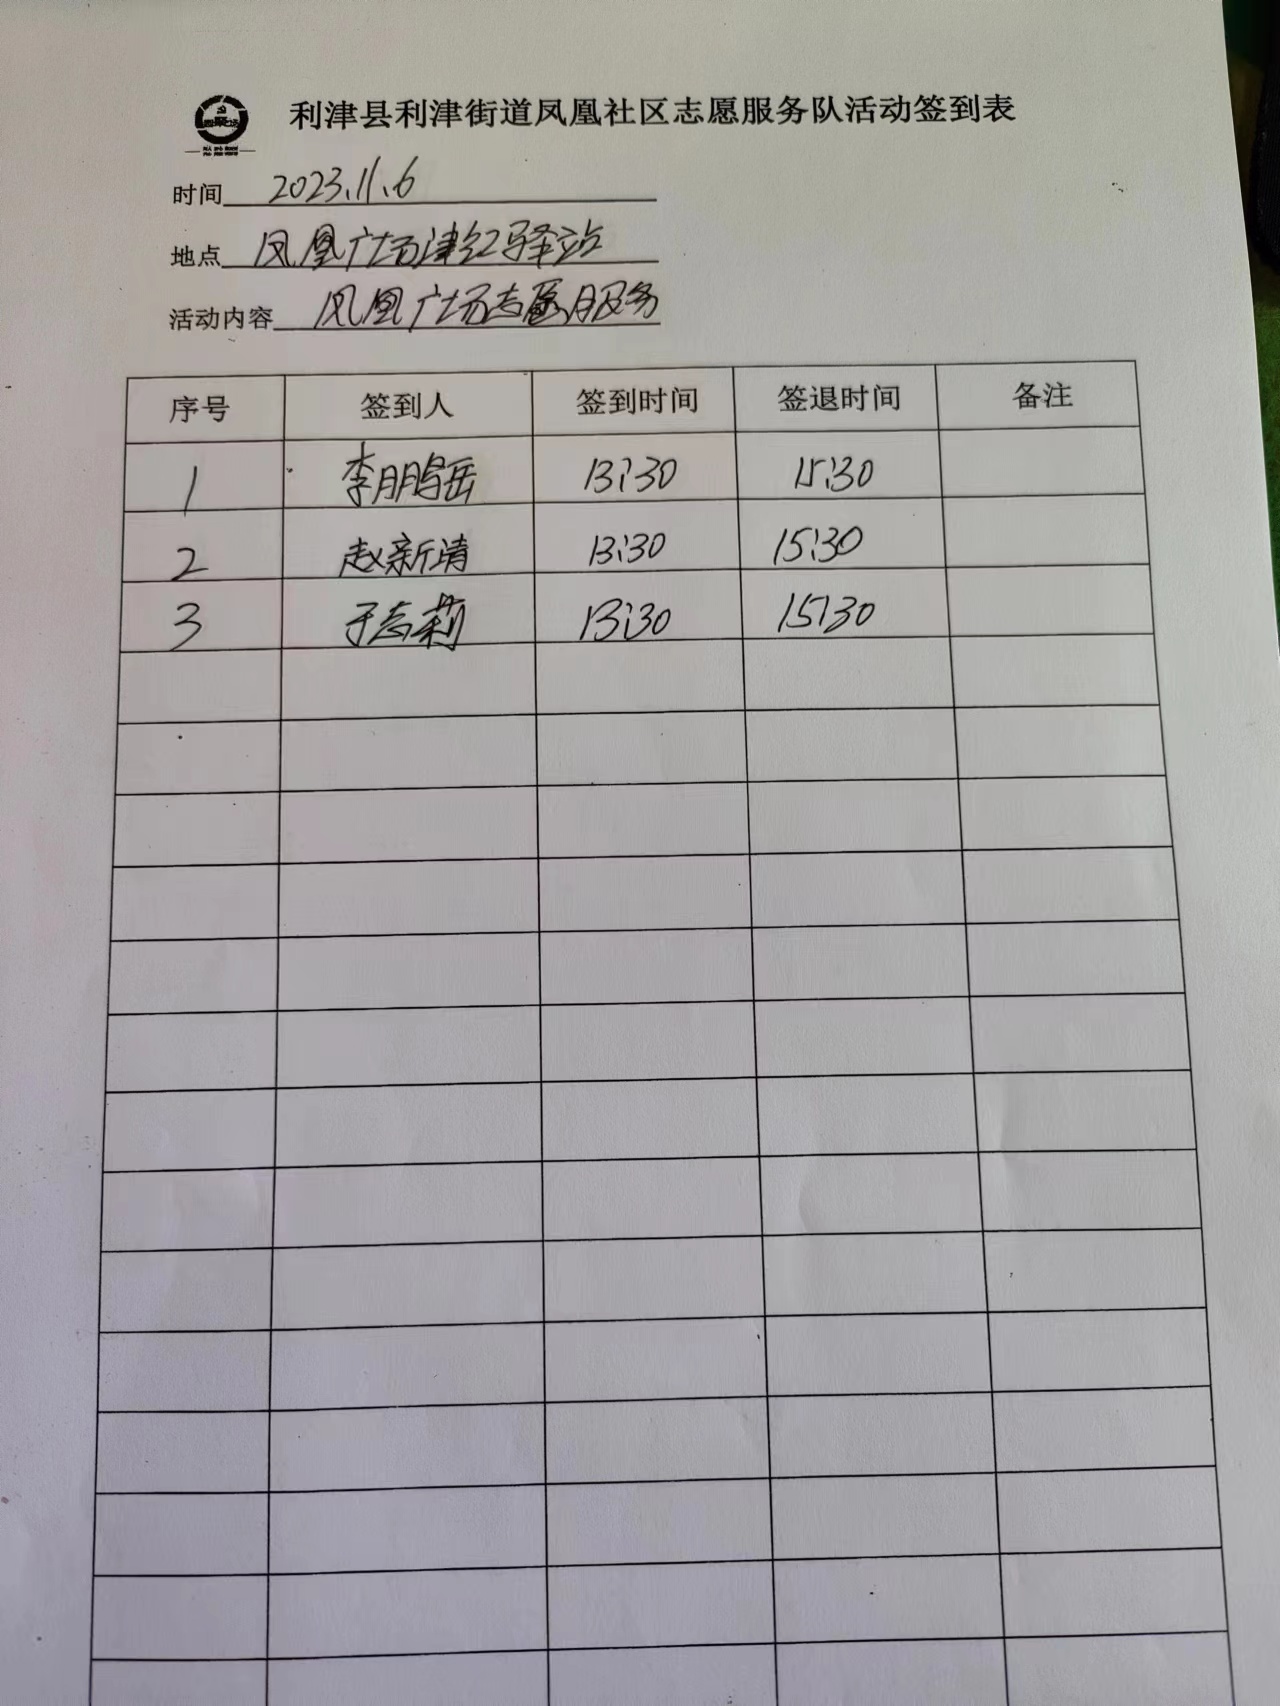 利津县利津街道凤凰社区志愿服务队活动签到表
时间 2023.11.6
地点 凤凰广场津红驿站
活动内容 凤凰广场志愿服务
序号 签到人 签到时间 签退时间 备注
1 李鹏岳 13:30 15:30
2 赵新清 13:30 15:30
3 于志莉 13:30 15:30